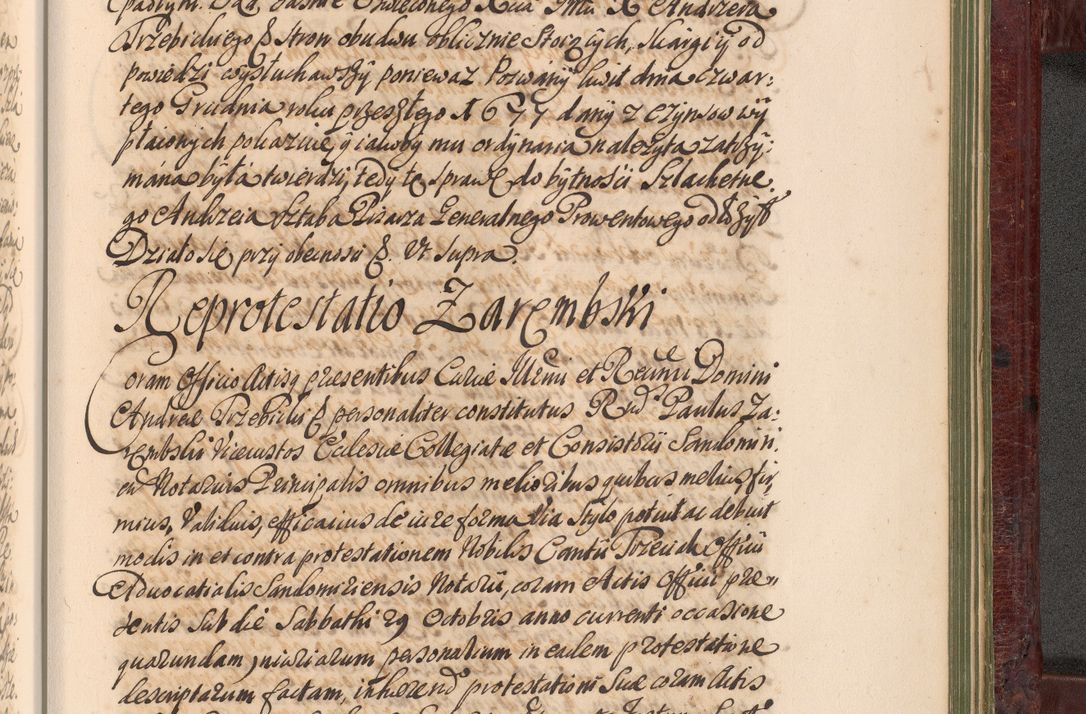 Trzebickiego & stron obudwu oblicznie stoiących, skargi y od
powiedzi wysłuchawszy poniewaz Pozwány kwit dnia czwar:
tego Grudnia roku przeszłego 1677 dany z czynszow wy
płaconych pokazuie, y iakoby mu ordynaria należyta zatrzy:
mána była twierdzi, tedy tę sprawę do bytności Szlachetne
go Andrzeia Pisarza Generalnego Prowentowego odłożył
Działo się przy obecnosci &. Ut supra.
Reprotestatio Zarembski
Coram Officio Actisq presentibus Curiæ Illrmi et Reudi Domini
Andreæ Trzebicki & personaliter constitutus Rndus Paulus Za:
rembski Vicecustos Ecclesiæ Collegiatæ et Consistorii Sandomiri:
en Notarius Principalis omnibus melioribus quibus melius, fir
mius, Validius, efficacius de iure forma Via Stylo potuit ac debuit
modis in et contra protestationem Nobilis Trzeciak Officii
Advocatialis Sandomiriensis Notarii, coram Actis Officii præ,,
sentis Sub die Sabbathi 29 Octobris anno currenti occasione
quarundam iniuriarum personalium in eadem protestatione
descriptarum factam, inhærend protestationi Suæ coram Actis